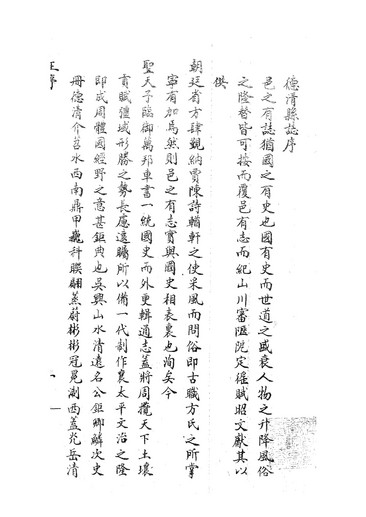 德清縣誌序
邑之有誌猶國之有史也國有史而世道之盛衰人物之升降風俗
之隆替皆可接而覆邑有志而紀山川審阨定徭賦昭文獻其以
供
朝廷省方肆覲納賈陳詩輶軒之使采風而問俗即古職方氏之所掌
寧有加焉然則邑之有志實與國史相表裏也洵矣今
聖天子臨御萬邦車書一統國史而外更輯通志蓋將周攬天下土壤
貢賦疆域形勝之勢長慮遠矚所以備一代制作襄太平文治之隆
即成周體國經野之意甚鉅典也吳興山水清遠名公鉅卿麟次史
冊德清介苕水西南鼎甲巍科蟬聯蔚彬彬冠冕浙西蓋先岳清
王序
一